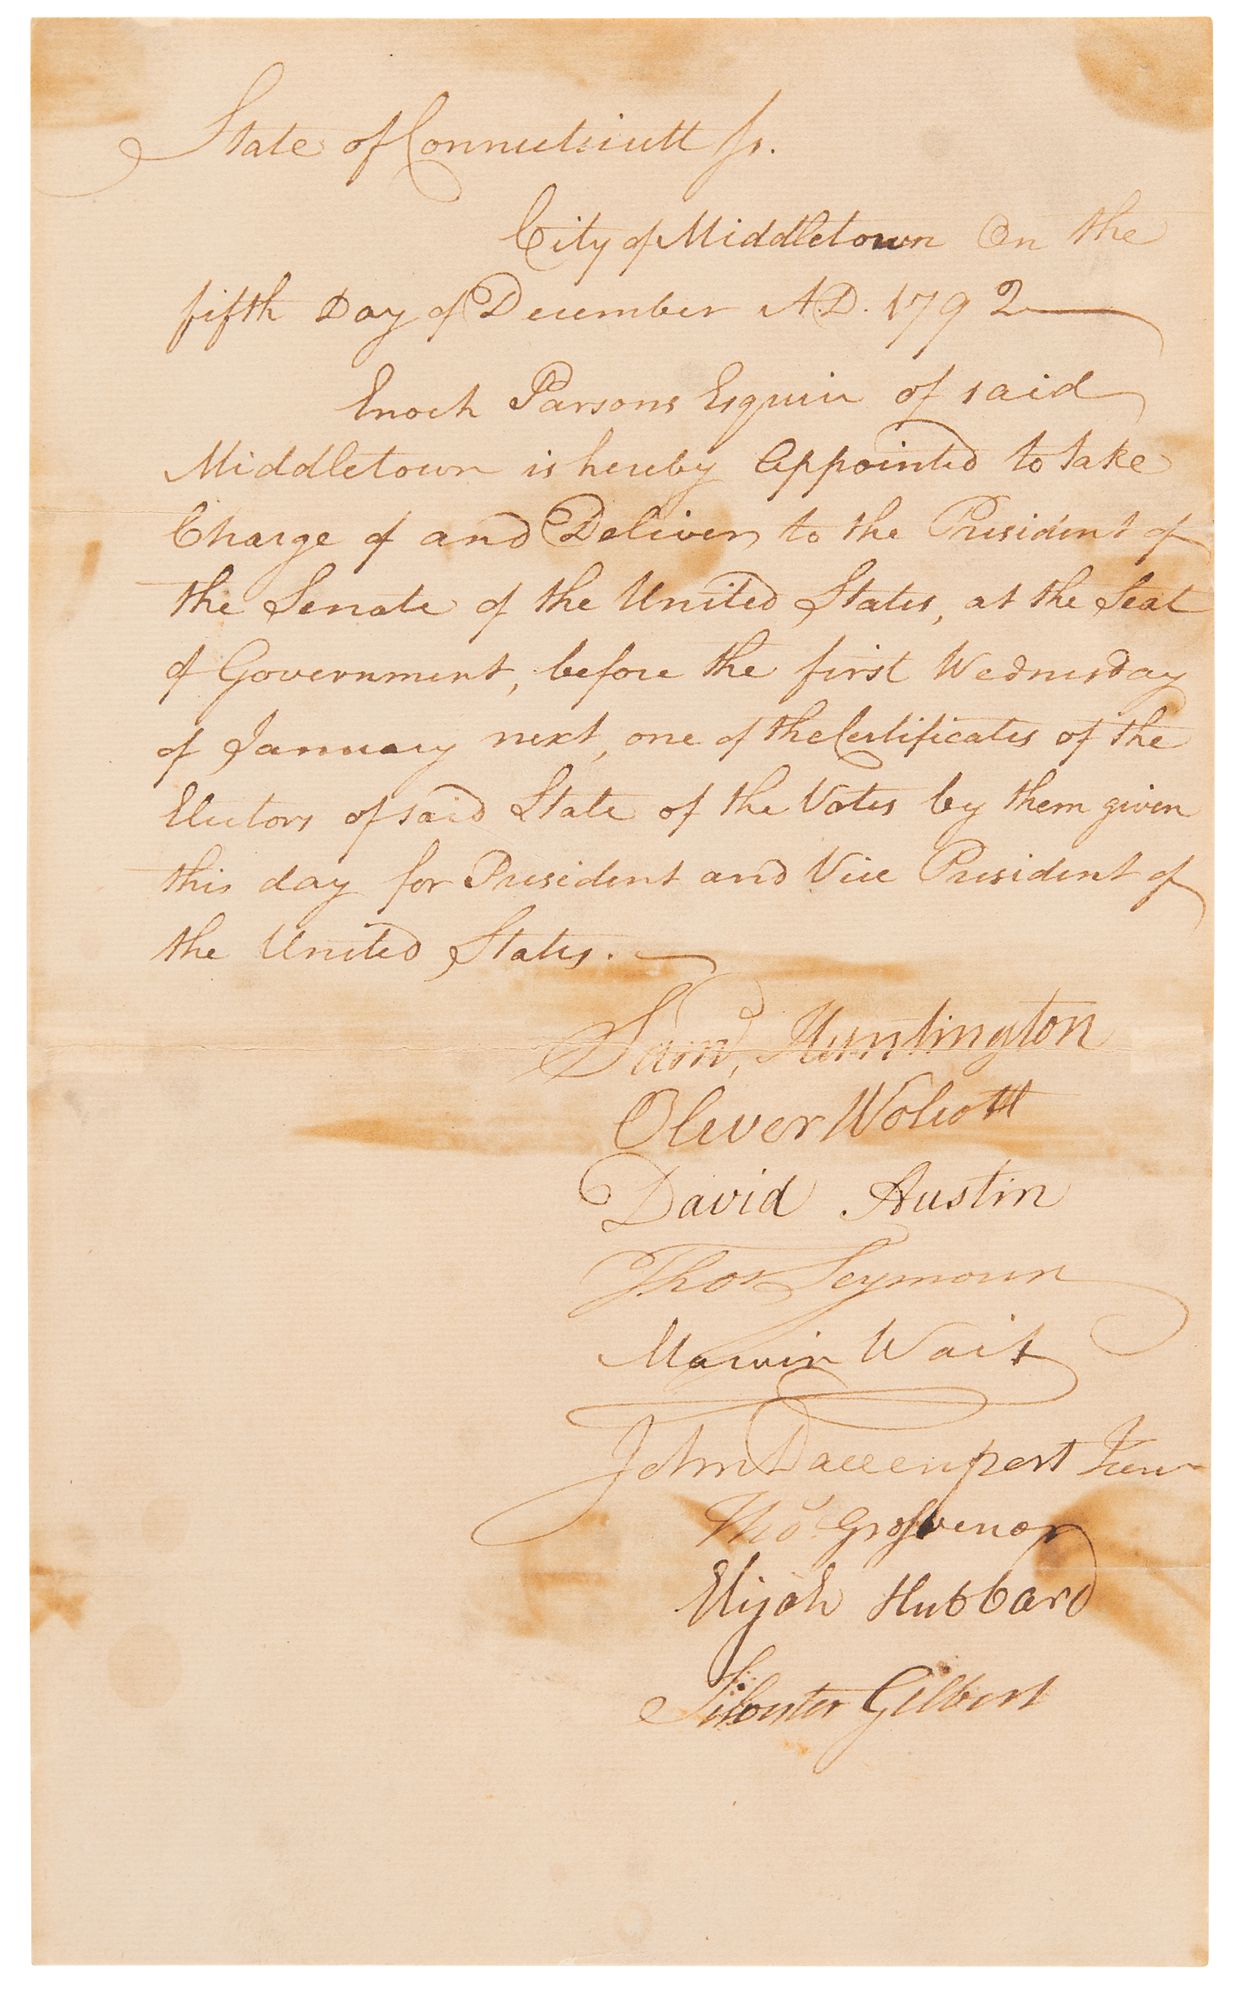 State of Connecticutt ss.
City of Middletown On the
fifth Day of December A.D. 1792
Enoch Parsons Esquire of said
Middletown is hereby Appointed to take
Charge of and Deliver to the President of
the Senate of the United States, at the Seat
of Government, before the first Wednesday
of January next, one of the Certificates of the
Electors of said State of the Votes by them given
this day for President and Vice President of
the United States.
Saml. Huntington
Oliver Wolcott
David Austin
Thos Seymour
Marvin Wait
John Davenport Junr
Thos. Grosvenor
Elijah Hubbard
Silvester Gilbert